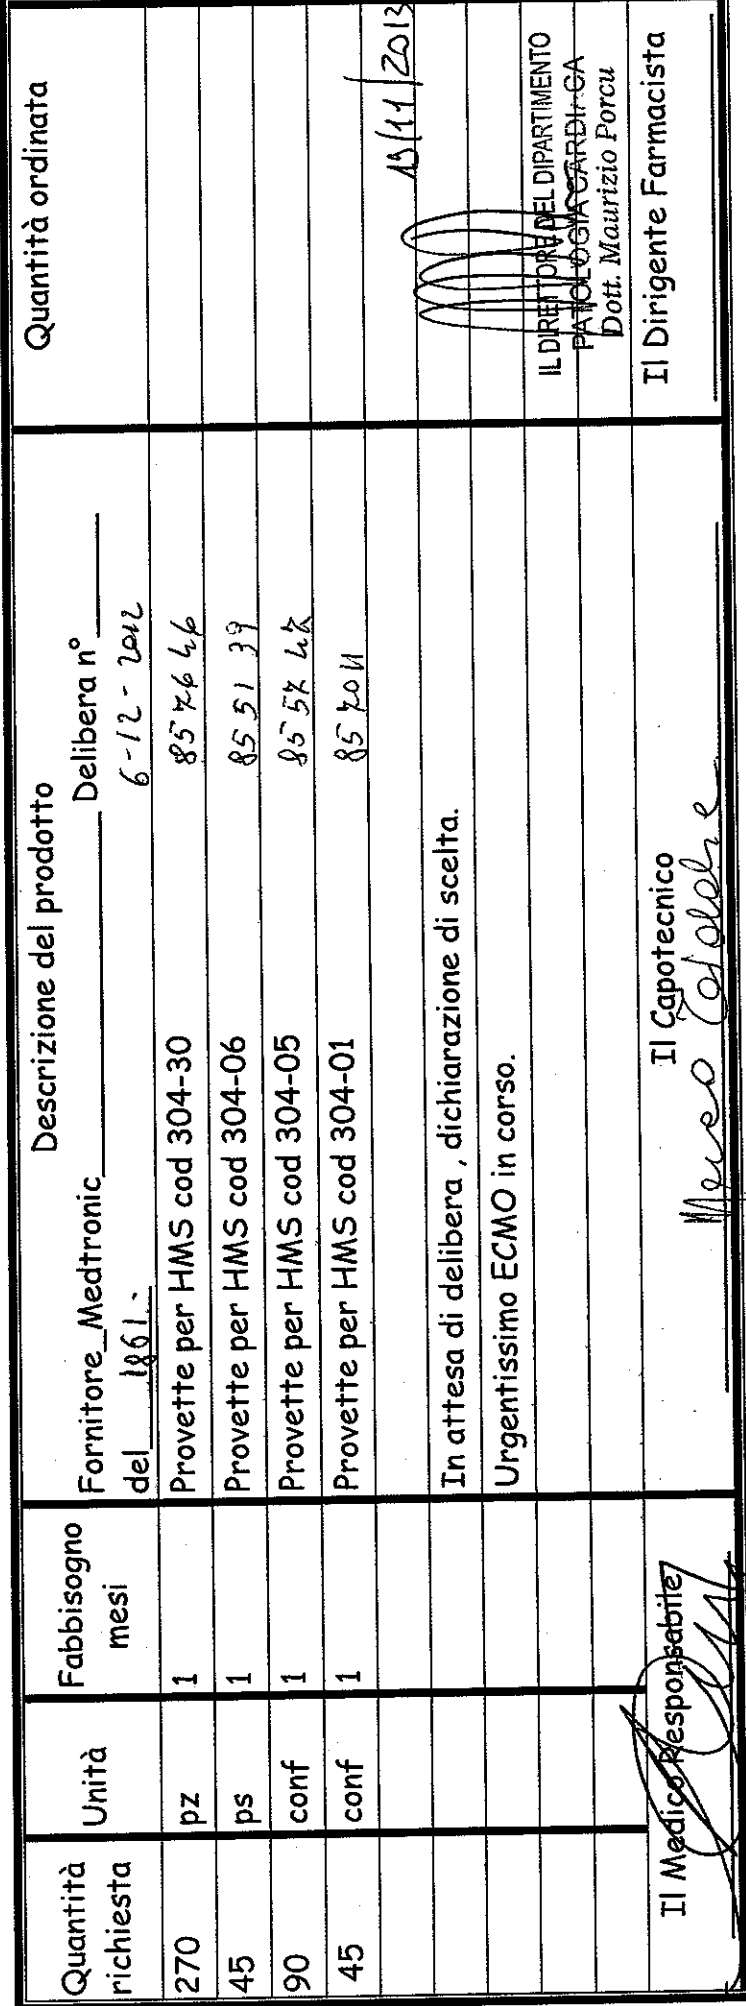 Quantità richiesta Unità Fabbisogno mesi Descrizione del prodotto Quantità ordinata
Fornitore_Medtronic Delibera n°
del 1861.- 6-12-2012
270 pz 1 Provette per HMS cod 304-30 857646
45 ps 1 Provette per HMS cod 304-06 855139
90 conf 1 Provette per HMS cod 304-05
45 conf 1 Provette per HMS cod 304-01
13/11/2013
In attesa di delibera , dichiarazione di scelta.
Urgentissimo ECMO in corso.
IL DIRETTORE DEL DIPARTIMENTO
PATOLOGIA CARDIACA
Dott. Maurizio Porcu
Il Medico Responsabile Il Capotecnico Il Dirigente Farmacista